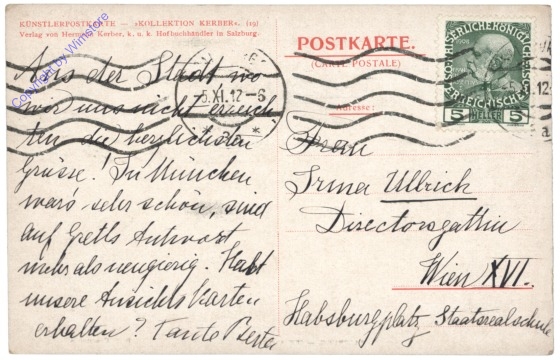 KÜNSTLERPOSTKARTE — »KOLLEKTION KERBER«. (19)
Verlag von Hermann Kerber, k. u. k. Hofbuchhändler in Salzburg.
Copyright by Winstore
Aus der Stadt wo
wir uns nicht erreich-
ten die herzlichsten
Grüsse! In München
war's sehr schön, sind
auf Gretls Antwort
mehr als neugierig. Habt
unsere Ansichtskarten
erhalten? Tante Berta
5.XI.12-6
POSTKARTE.
(CARTE POSTALE)
Adresse:
1908
5 HELLER 5
Frau
Irma Ullrich
Directorsgattin
Wien XVI.
Habsburgplatz, Staatsrealschule